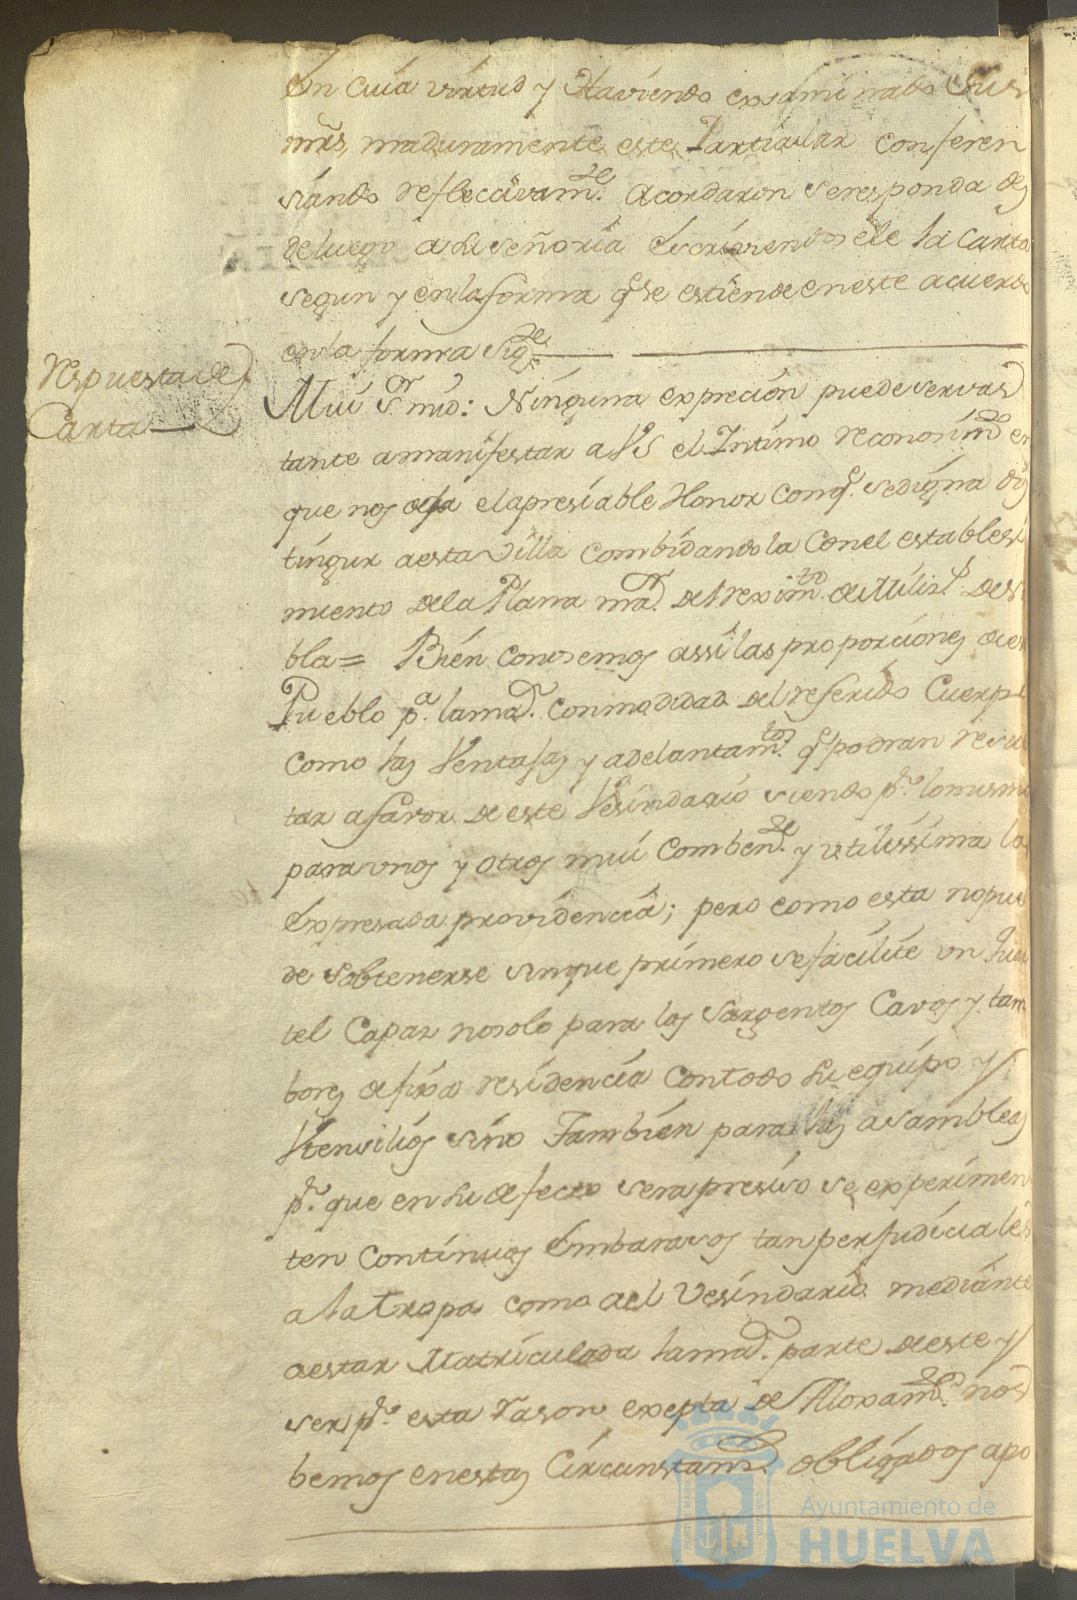 En cuia virtud y Haviendo exsaminado Sus
mrs, maduramente este Particular conferen
siando reflecsivamte. Acordaron se responda des
de luego a su señoria Escriviendosele la Carta
segun y en la forma qe se estiende en este acuerdo
en la forma sigte
Respuesta de
Carta
Mui Sr. mio: Ninguna exprecion puede ser vas
tante a manifestar a VS el Intimo reconosimto en
que nos deja el apresiable Honor con qe. se digna dis
tinguir a esta villa combidandola con el establesi
miento de la Plana mar. del reximto. de Miliss. de Se
bla= Bien conosemos assi las proporciones de este
Pueblo pa. la mar. conmodidad del referido Cuerpo
como las Ventajas y adelantamtos. qe podran resul
tar a favor de este Vesindario siendo pr. lo mismo
para unos y otros mui combente. y utilissima la
Expresada providencia; pero como esta no pue
de obtenerse sin que primero se facilite un Quar
tel capaz no solo para los Sargentos Cavos y tam
bores de fixa residencia con todo su equipo y
Vtensilios sino Tambien para las asambleas
pr. que en su defecto sera presiso se experimen
ten continuos Embarasos tan perjudiciales
a la tropa como a el Vesindario mediante
a estar Matriculada la mar. parte de este y
ser pr. esta rason exepta de Aloxamto. nos
bemos en estas Circunstans. obligados a po
Ayuntamiento de
HUELVA